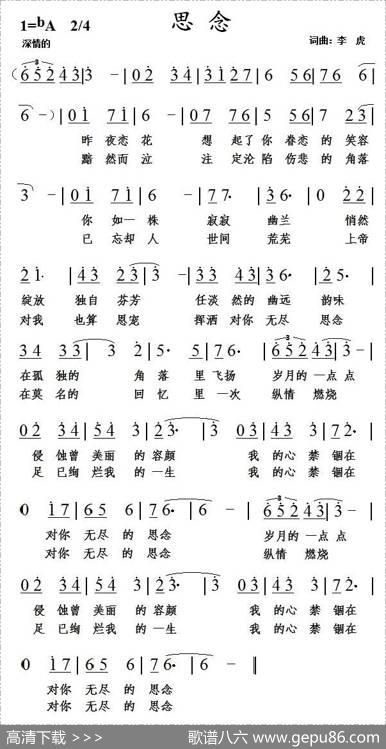 思念
1=bA 2/4
深情的
词曲：李 虎
(6 5 2 4 3 3 - | 0 2 3 4 | 3 1 2 7 6 | 5 6 7 6 |
6 - ) | 0 1 7 1 | 6 - | 0 1 7 1 | 7 6 5 | 6 5 6 7 6 |
昨 夜 恋 花 想 起了 你 眷恋 的 笑容
黯 然 而 泣 注 定沦 陷 伤悲 的 角落
3 - | 0 1 7 1 | 6 - | 7 7· | 3 6· | 0 2 2 |
你 如一 株 寂寂 幽兰 悄然
已 忘却 人 世间 荒芜 上帝
2 1· | 4 3 2 3 | 3 - | 3 3 4 3 | 3 6 2· | 2 5· |
绽放 独自 芬芳 任淡 然的 幽远 韵味
对我 也算 恩宠 挥洒 对你 无尽 思念
3 4 3 3 | 3 2 | 2 5· | 5 7 6· | 6 5 2 4 3 | 3 - |
在孤 独的 角 落 里 飞扬 岁月的 一点 点
在莫 名的 回 忆 里 一次 纵情 燃烧
0 2 3 4 | 5 4 5 | 5 2 3· | 3 - | 0 3 6 | 4 3 3 | 7 2· |
侵 蚀曾 美丽 的 容颜 我 的心 禁 锢在
足 已绚 烂我 的 一生 我 的心 禁 锢在
0 1 7 | 6 5 6 5 | 7 6· | 6 - | 6 5 2 4 3 | 3 - |
对你 无尽 的 思念 岁月的 一点 点
对你 无尽 的 思念 纵情 燃烧
0 2 3 4 | 5 4 5 | 5 2 3· | 2 3 - | 0 3 6 | 4 3 3 | 7 2· |
侵 蚀曾 美丽 的 容颜 我 的心 禁 锢在
足 已绚 烂我 的 一生 我 的心 禁 锢在
0 1 7 | 6 5 6 5 | 7 6· | 6 - ‖
对你 无尽 的 思念
对你 无尽 的 思念
高清下载 >>>
歌谱八六 www.gepu86.com